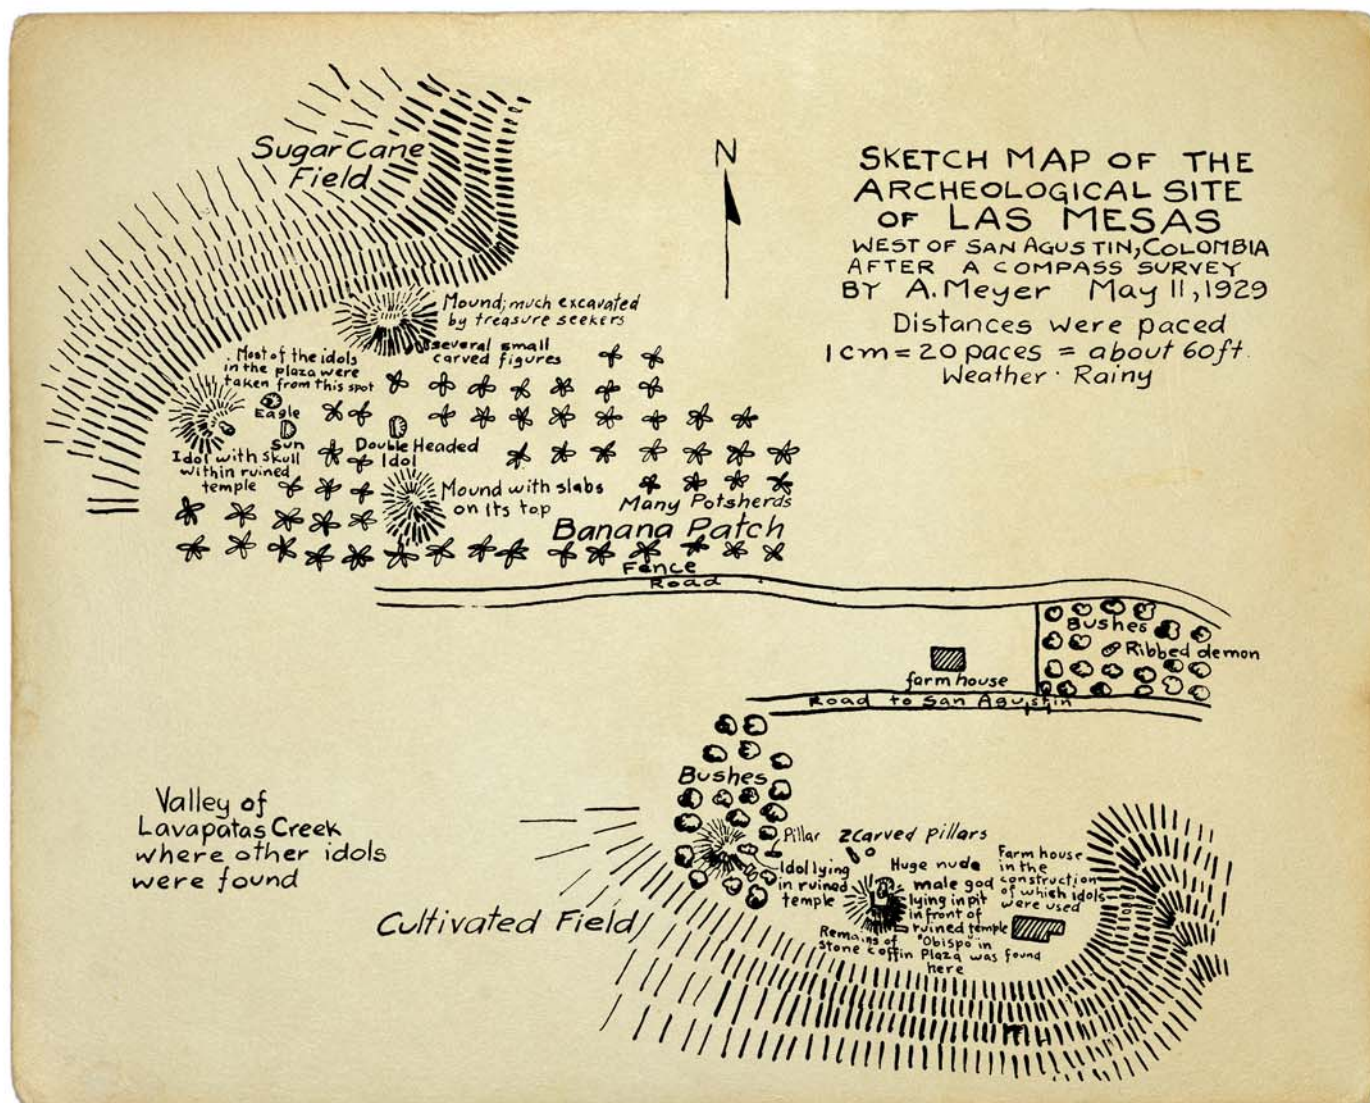 Sugar Cane
Field
N
SKETCH MAP OF THE
ARCHEOLOGICAL SITE
OF LAS MESAS
WEST OF SAN AGUSTIN, COLOMBIA
AFTER A COMPASS SURVEY
BY A. Meyer May 11, 1929
Distances were paced
1cm = 20 paces = about 60ft.
Weather · Rainy
Mound; much excavated
by treasure seekers
several small
carved figures
Most of the idols
in the plaza were
taken from this spot
Eagle
Sun
Double Headed
Idol
Idol with skull
within ruined
temple
Mound with slabs
on its top
Many Potsherds
Banana Patch
Fence
Road
Bushes
Ribbed demon
farm house
Road to San Agustin
Bushes
Valley of
Lavapatas Creek
where other idols
were found
Cultivated Field
Pillar
2 Carved pillars
Idol lying
in ruined
temple
Huge nude
male god
lying in pit
in front of
ruined temple
Farm house
in the
construction
of which idols
were used
Remains of
stone coffin
"Obispo" in
Plaza was found
here